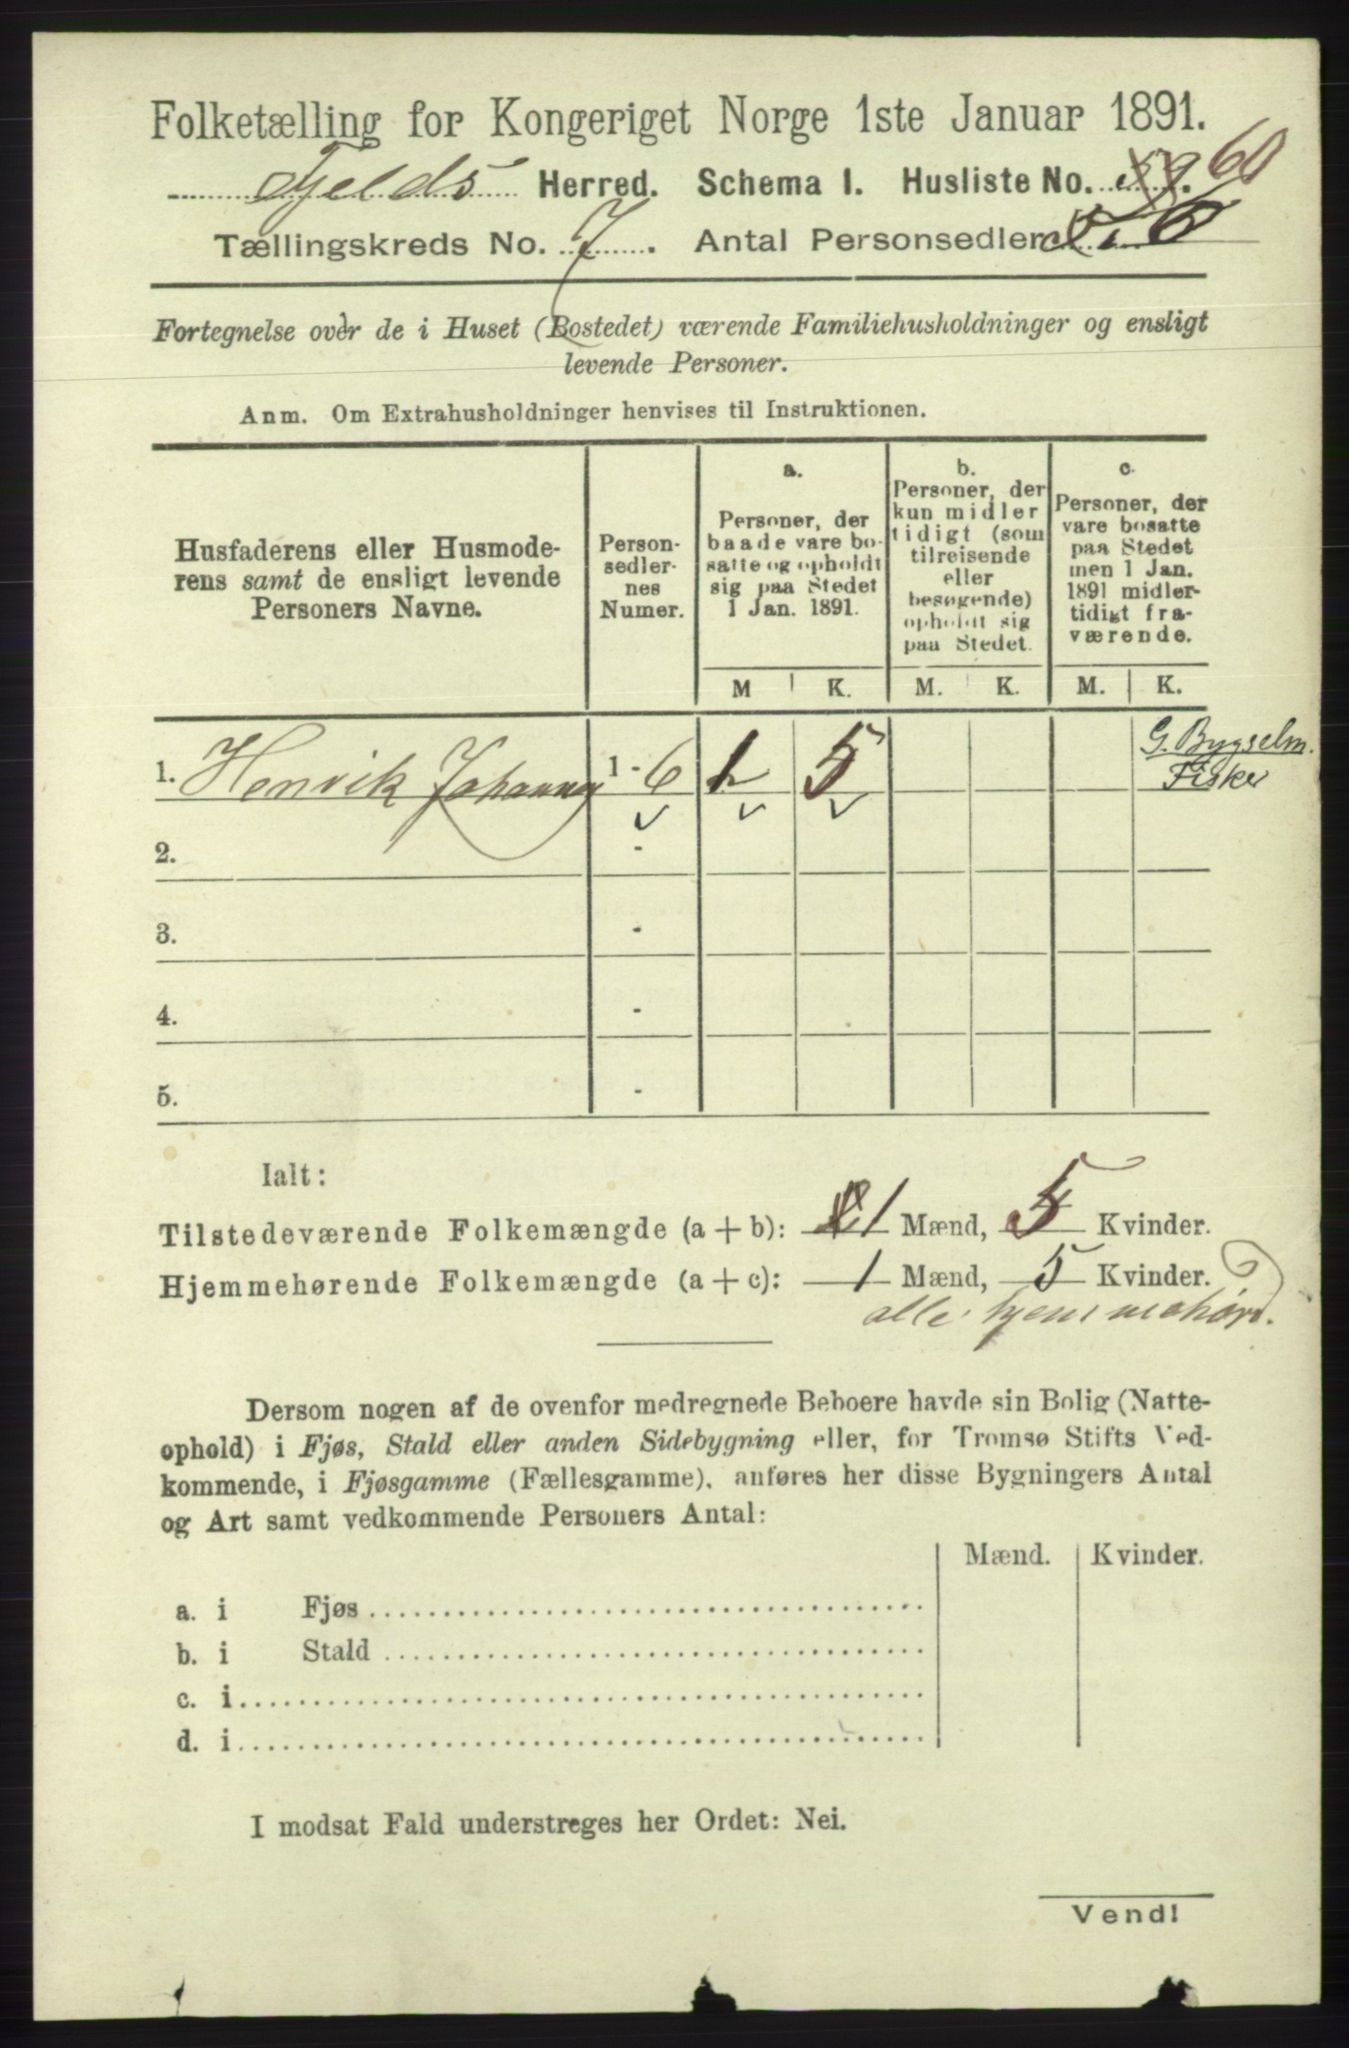 Folketælling for Kongeriget Norge 1ste Januar 1891.
Fjelds Herred. Schema I. Husliste No. 59. 60
Tællingskreds No. 7. Antal Personsedler 6
Fortegnelse over de i Huset (Bostedet) værende Familiehusholdninger og ensligt
levende Personer.
Anm. Om Extrahusholdninger henvises til Instruktionen.
Husfaderens eller Husmode-
rens samt de ensligt levende
Personers Navne.
Person-
sedler-
nes
Numer.
a.
Personer, der
baade vare bo-
satte og opholdt
sig paa Stedet
1 Jan. 1891.
b.
Personer, der
kun midler
tidigt (som
tilreisende
eller
besøgende)
opholdt sig
paa Stedet.
c.
Personer, der
vare bosatte
paa Stedet
men 1 Jan.
1891 midler-
tidigt fra-
værende.
M K. M. K. M. K.
1. Henrik 1 - 6 1 5 G. Bygselm.
Fisker
2. -
3. -
4. -
5. -
Ialt:
Tilstedeværende Folkemængde (a + b): 1 Mænd, 5 Kvinder.
Hjemmehørende Folkemængde (a + c): 1 Mænd, 5 Kvinder.
alle hjemmehør.
Dersom nogen af de ovenfor medregnede Beboere havde sin Bolig (Natte-
ophold) i Fjøs, Stald eller anden Sidebygning eller, for Tromsø Stifts Ved-
kommende, i Fjøsgamme (Fællesgamme), anføres her disse Bygningers Antal
og Art samt vedkommende Personers Antal:
Mænd. Kvinder.
a. i Fjøs
b. i Stald
c. i
d. i
I modsat Fald understreges her Ordet: Nei.
Vend!